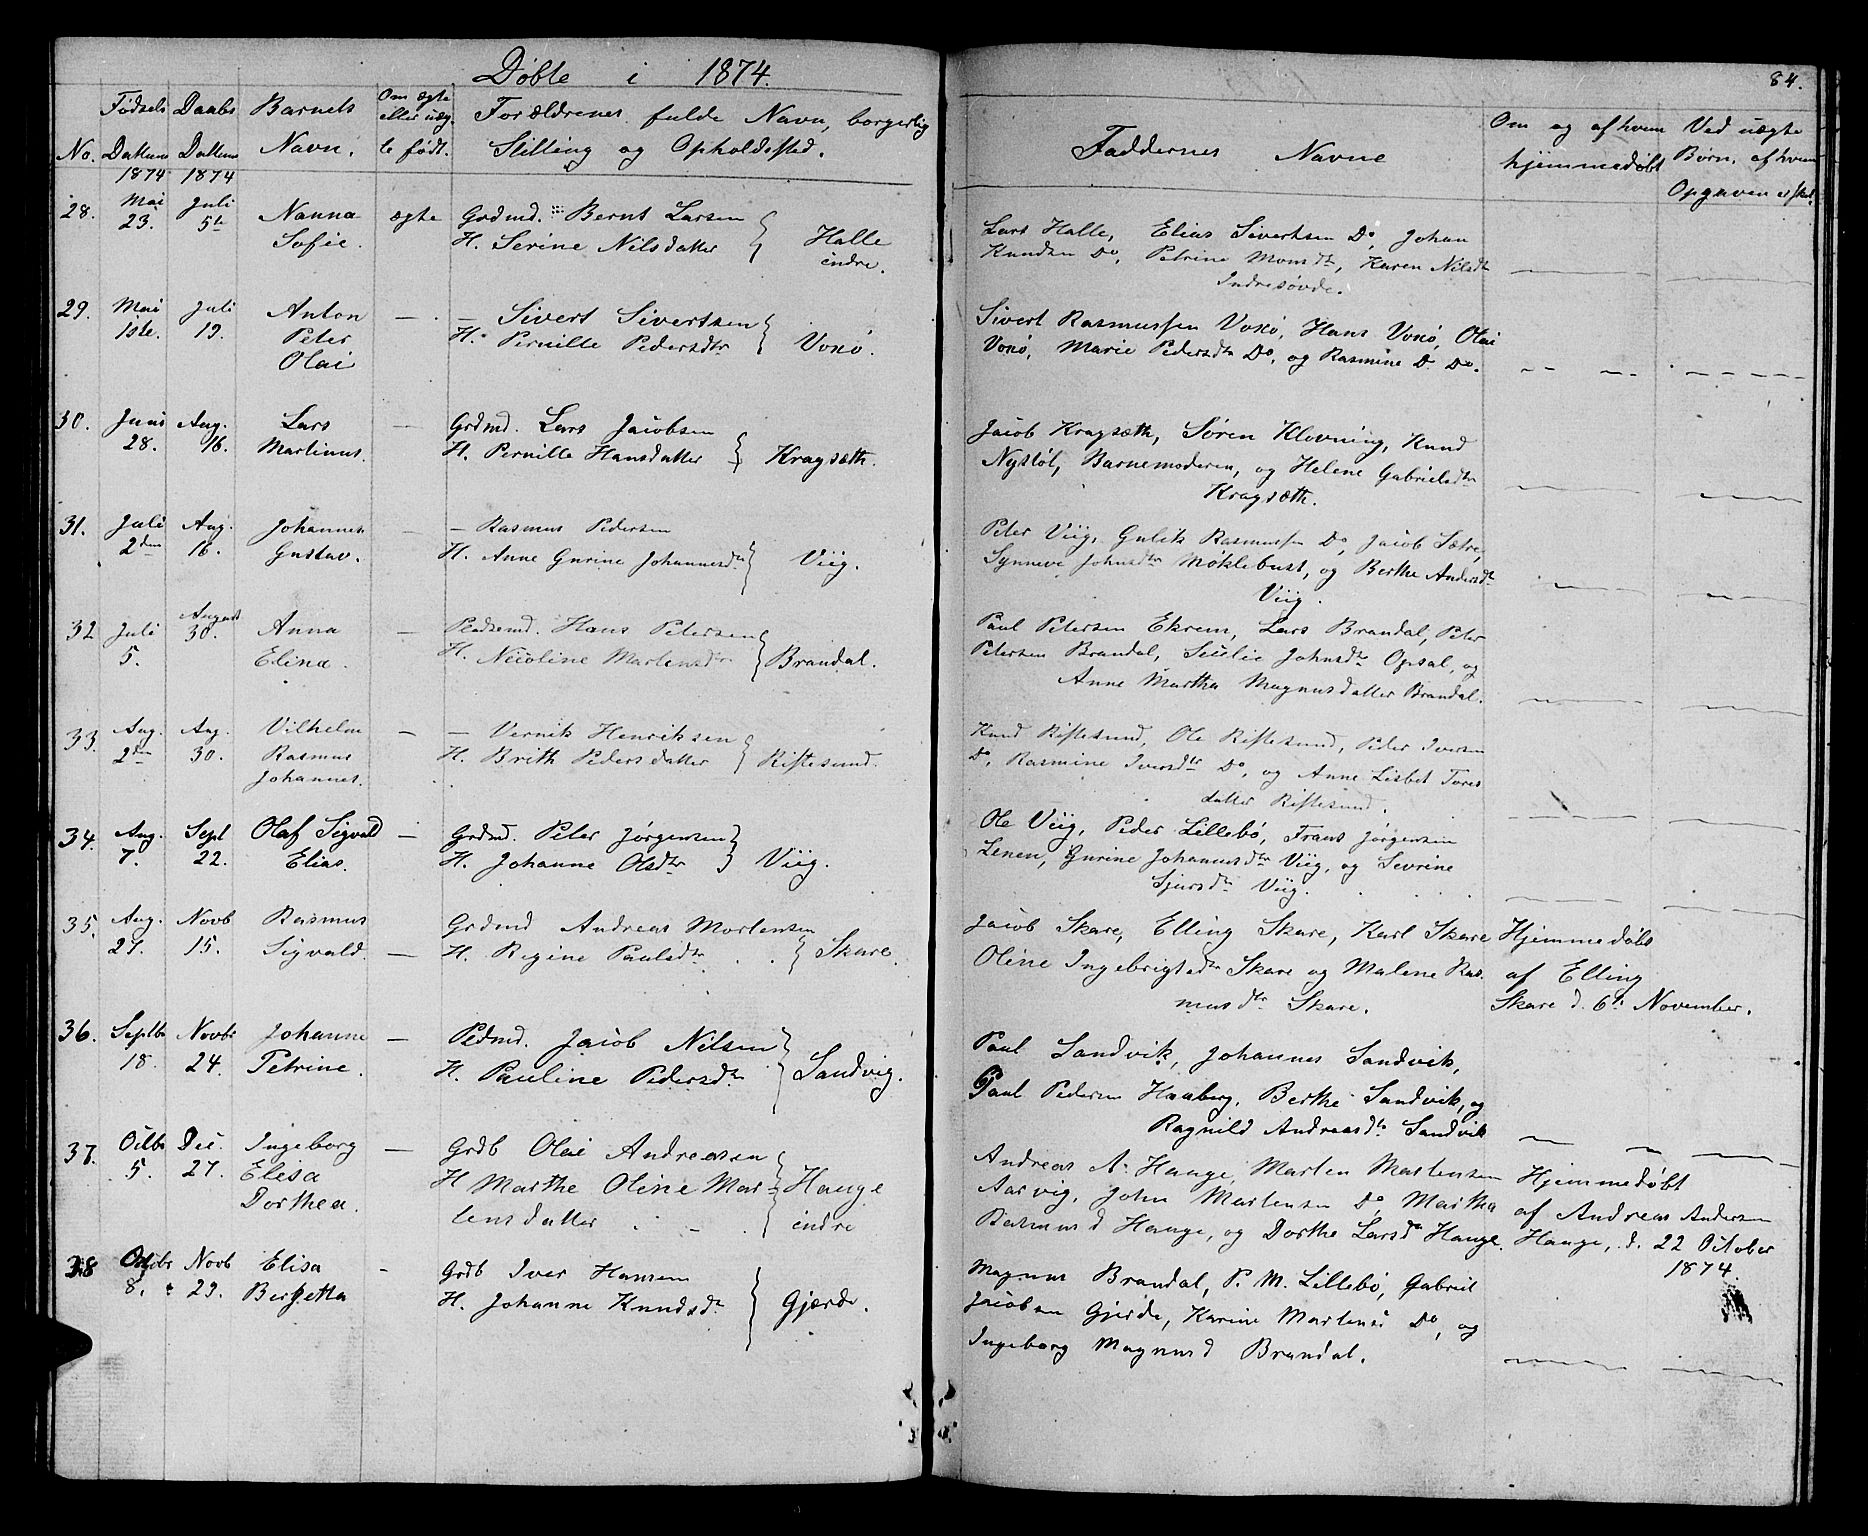 Døbte i 1874.
No. Fødsels Dattum 1874 Daabs Dattum 1874 Barnets Navn. Om ægte eller uægte født. Forældrenes fulde Navn, borgerlig Stilling og Opholdssted.
28. Mai 23. Juli 5te Nanna Sofie. ægte Grdmd. Bernt Larsen
H. Serine Nilsdatter } Halle indre.
29. Mai 1ste. Juli 19. Anton Peter Olai — — Sivert Sivertsen
H. Pernille Pedersdtr } Voxø.
30. Juni 28. Aug. 16. Lars Martinus. — Grdmd. Lars Jacobsen
H. Pernille Hansdatter } Kragsæth.
31. Juli 2den Aug. 16. Johannes Gustav. — — Rasmus Pedersen
H. Anne Gurine Johannesdtr } Viig.
32 Juli 5. August 30. Anna Elina. — Pladsmd. Hans Petersen
H. Nicoline Martensdtr } Brandal.
33. Aug. 2den Aug. 30. Vilhelm Rasmus Johannes. — — Vernik Henriksen
H. Brith Pedersdatter } Riftesund.
34. Aug. 7. Sept 22. Olaf Sigvald Elias. — Grdmd. Peter Jørgensen
H. Johanne Olsdtr } Viig.
35. Aug. 27. Novb 15. Rasmus Sigvald. — Grdmd Andreas Mortensen
H. Regine Paulsdtr } Skare.
36. Septbr 18. Novbr 24. Johanne Petrine. — Pdmd. Jacob Nilsen
H. Pauline Pedersdtr } Sandvig.
37. Octbr 5. Dec. 27. Ingeborg Elisa Dorthea. — Grdb Olai Andreasen
H Marthe Oline Mar-
tensdatter } Hauge indre
38 Octbr 8. Novb 29. Elisa Bergetta - Grdb Iver Hansen
H. Johanne Knudsdtr } Gjærde.
84.
Faddernes Navne
Om og af hvem hjemmedøbt
Ved uægte Børn, af hvem Opgaven er sket.
Lars Halle, Elias Sivertsen Do, Johan
Knudsen Do, Petrine Monsdtr, Karen Nilsdtr
Indresøvde.
Sivert Rasmussen Voxø, Hans Voxø, Olai
Voxø, Marie Pedersdtr Do, og Rasmine D. Do.
Jacob Kragsæth, Søren Klovning, Knud
Nystøl, Barnemoderen, og Helene Gabrielsdtr
Kragsæth.
Peter Viig, Gulik Rasmussen Do, Jacob Sætre,
Synneve Johnsdtr Møklebust, og Berthe Andersdtr
Viig.
Paul Petersen Ekrem, Lars Brandal, Peter
Petersen Brandal, Secilie Johnsdtr Opsal, og
Anne Martha Magnusdatter Brandal.
Knud Riftesund, Ole Riftesund, Peder Iversen
Do, Rasmine Iversdtr Do, og Anne Lisbet Tores
datter Riftesund.
Ole Viig, Peder Lillebø, Frans Jørgensen
Lenen, Gurine Johannesdtr Viig, og Sevrine
Sjursdtr Viig.
Jacob Skare, Elling Skare, Karl Skare
Oline Ingebrigtsdtr Skare og Malene Ras-
musdtr Skare.
Hjemmedøbt
af Elling
Skare d. 6te November.
Paul Sandvik, Johannes Sandvik,
Paul Pedersen Haaberg, Berthe Sandvik, og
Ragnild Andreasdtr Sandvik
Andreas A. Hauge, Marten Martensen
Aarvig, John Martensen Do, Martha
Rasmusd Hauge, og Dorthe Larsdtr Hauge.
Hjemmedøbt
af Andreas Andersen
Hauge, d. 22 October
1874.
Magnus Brandal, P. M. Lillebø, Gabriel
Jacobsen Gjerde, Karine Martens Do, og
Ingeborg Magnusd Brandal.